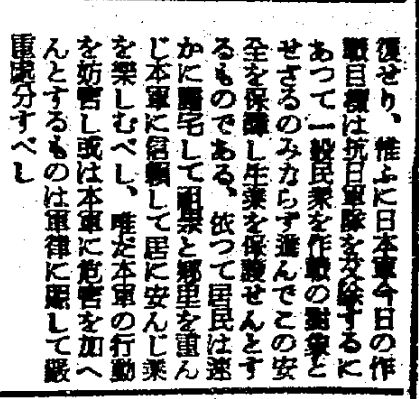 復せり、惟ふに日本軍今日の作
戰目標は抗日軍隊を芟除するに
あつて一般民衆を作戰の對象と
せざるのみならず進んでこの安
全を保障し生業を保護せんとす
るものである、依つて居民は速
かに歸宅して祖祟と郷里を重ん
じ本軍に信頼して居に安んじ業
を樂しむべし、唯だ本軍の行動
を妨害し或は本軍に危害を加へ
んとするものは軍律に照して嚴
重處分すべし